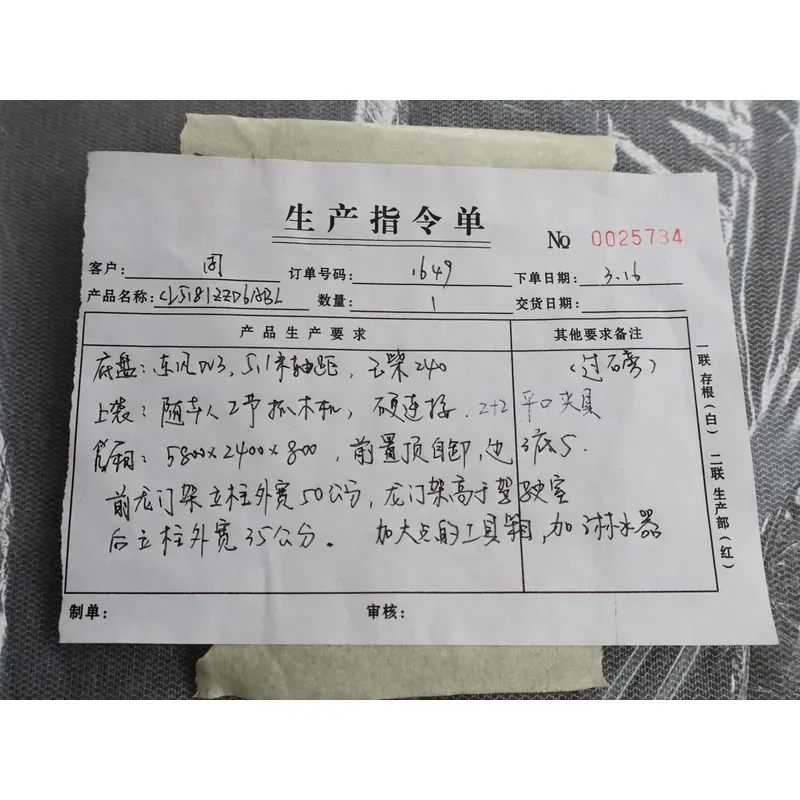 生产指令单
No 0025734
客户: 周 订单号码: 1649 下单日期: 3.16
产品名称: CLS181ZZD6ABL 数量: 1 交货日期:
产品生产要求 其他要求备注
底盘: 东风DV3, 5.1米轴距, 玉柴240 (过石膏)
上装: 随车人工节抓木机, 硬连接. 2+2 平口夹具
货厢: 5800×2400×800, 前置顶自卸, 边3底5.
前龙门架立柱外宽50公分, 龙门架高于驾驶室
后立柱外宽35公分. 加大点的工具箱, 加淋水器
制单: 审核:
一联存根(白) 二联生产部(红)